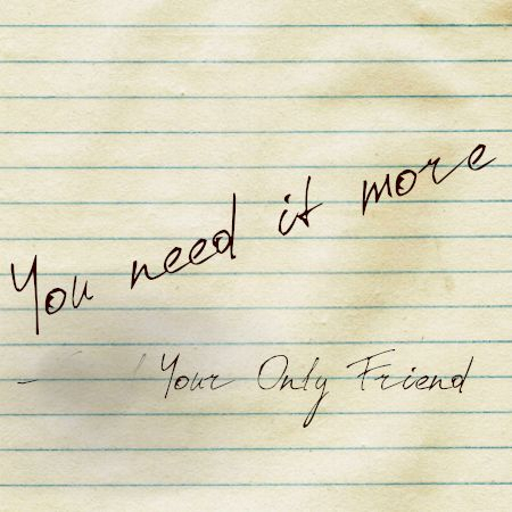 You need it more
- Your Only Friend